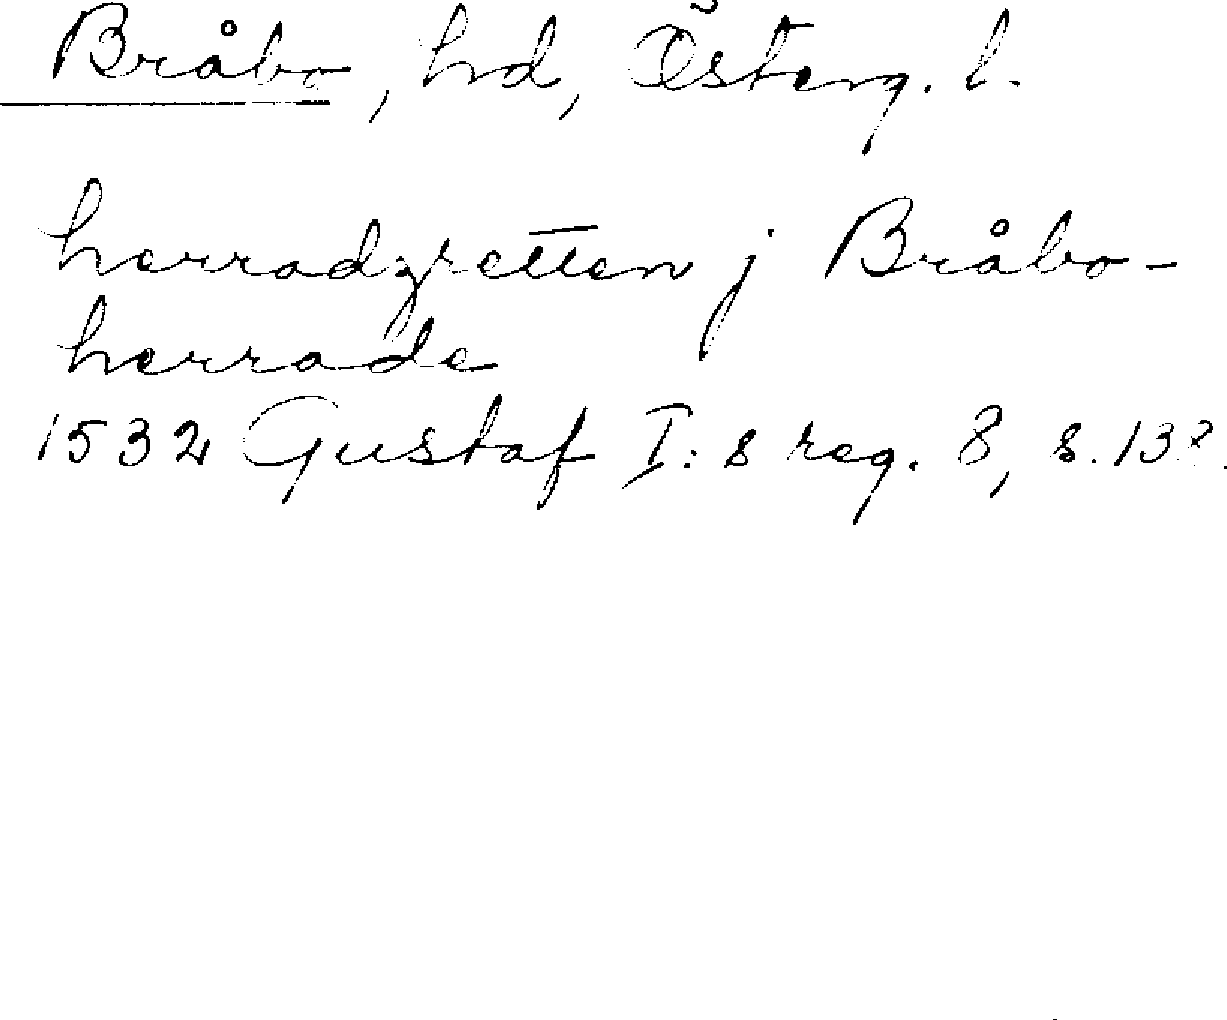 Bråbo, hd, Österg. l.
herradzretten j Bråbo-
herrade
1532 Gustaf I:s reg. 8, s.